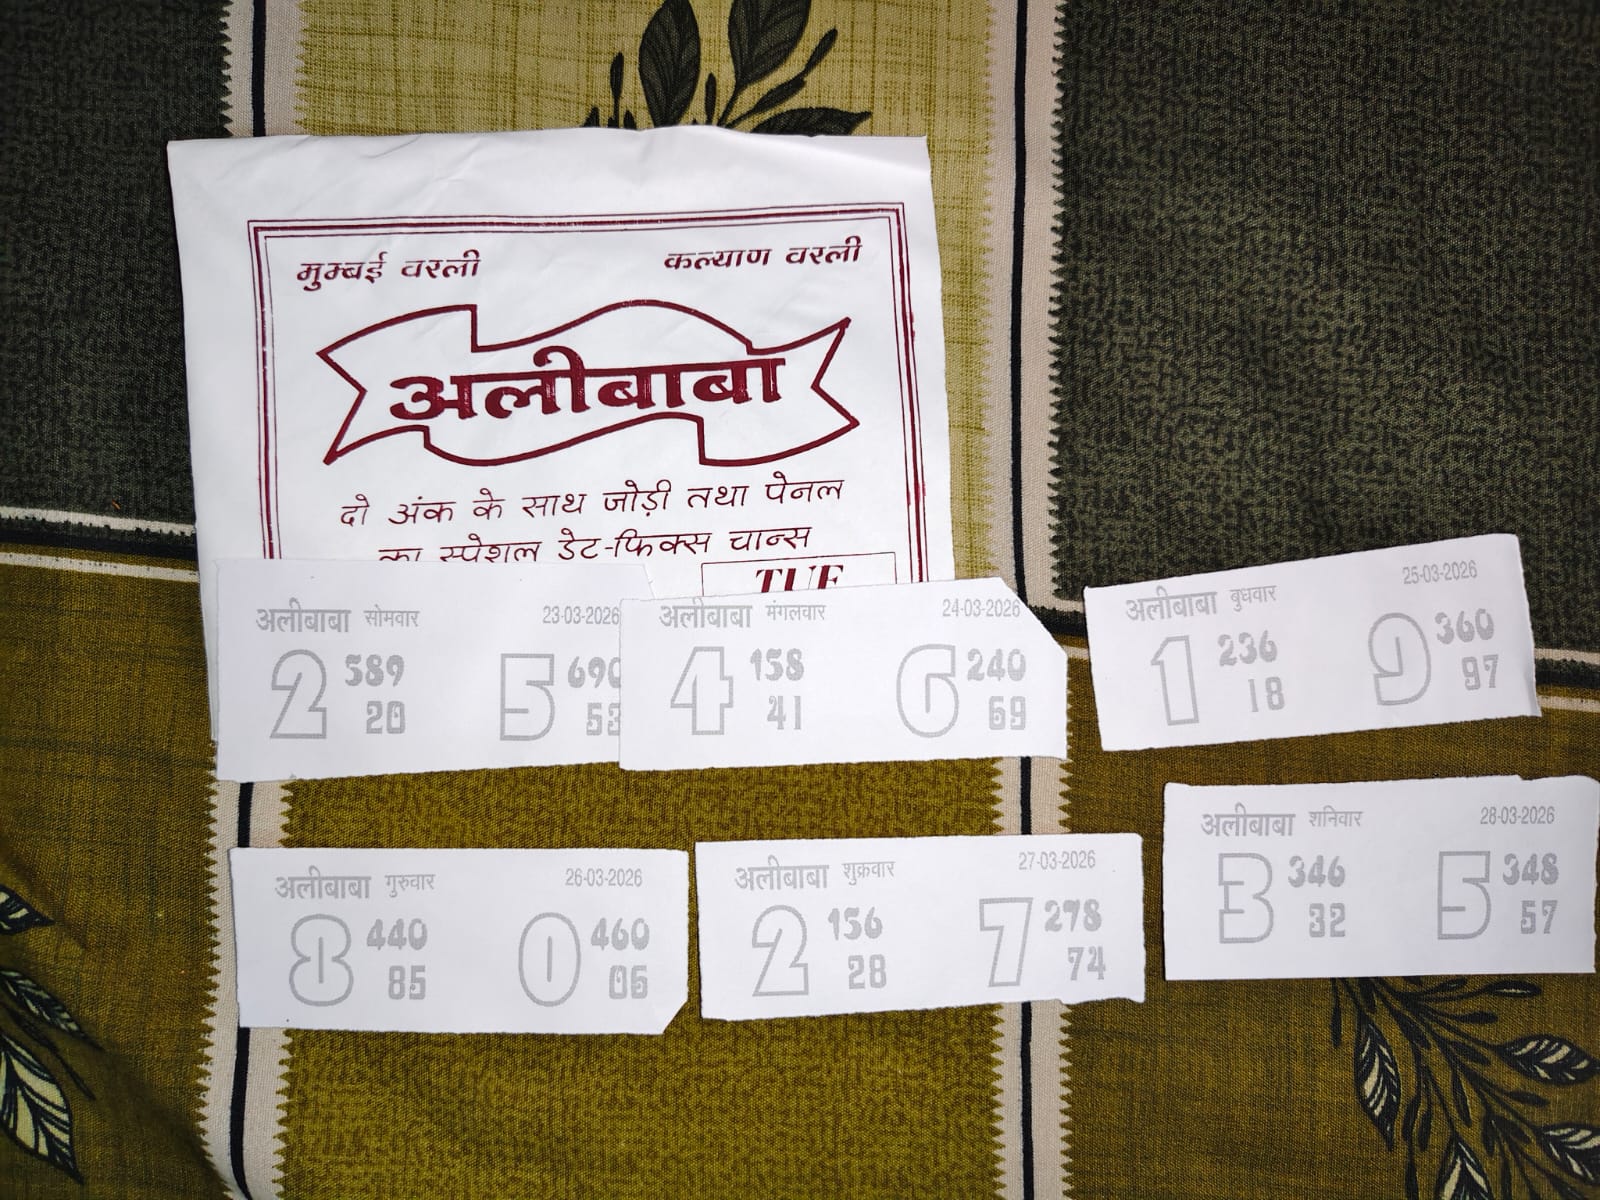 मुम्बई वरली कल्याण वरली
अलीबाबा
दो अंक के साथ जोड़ी तथा पेनल
का स्पेशल डेट-फिक्स चान्स
अलीबाबा सोमवार 23-03-2026
2 589 5 690
20 53
अलीबाबा मंगलवार 24-03-2026
4 158 6 240
41 69
अलीबाबा बुधवार 25-03-2026
1 236 9 360
18 97
अलीबाबा गुरुवार 26-03-2026
8 440 0 460
85 06
अलीबाबा शुक्रवार 27-03-2026
2 156 7 278
28 74
अलीबाबा शनिवार 28-03-2026
3 346 5 348
32 57